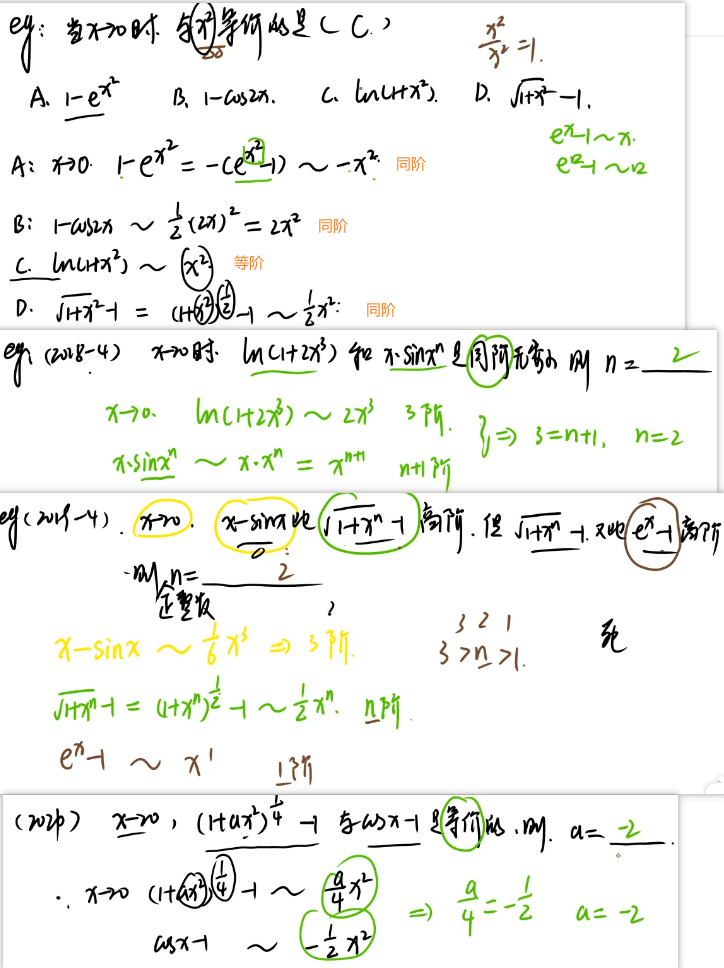 eg: 当x→0时.与x²等价的是( C.)
x²/x² =1.
A. 1-e^x² B. 1-cos2x. C. ln(1+x²). D. √(1+x²) -1.
e^x-1~x.
e^□-1~□
A: x→0. 1-e^x² = -(e^x²-1) ~ -x². 同阶
B: 1-cos2x ~ 1/2(2x)² = 2x² 同阶
C. ln(1+x²) ~ x². 等阶
D. √(1+x²)-1 = (1+x²)^1/2 -1 ~ 1/2x². 同阶
eg (2018-4) x→0时. ln(1+2x³) 和 x·sinxⁿ 是同阶无穷小 则 n= 2
x→0. ln(1+2x³) ~ 2x³ 3阶.
x·sinxⁿ ~ x·xⁿ = xⁿ⁺¹ n+1阶
} ⇒ 3=n+1, n=2
eg( -4). x→0. x-sinx比√(1+xⁿ)-1高阶.但√(1+xⁿ)-1.又比e^x-1高阶
则 n= 2
正整数
x-sinx ~ 1/6x³ ⇒ 3阶.
3 2 1
3>n>1.
√(1+xⁿ)-1 = (1+xⁿ)^1/2 -1 ~ 1/2xⁿ. n阶.
e^x-1 ~ x¹ 1阶
x→0, (1+ax²)^1/4 -1 与cosx-1是等价的.则. a= -2.
∴ x→0 (1+ax²)^1/4 -1 ~ a/4x²
cosx-1 ~ -1/2x²
⇒ a/4=-1/2 a=-2